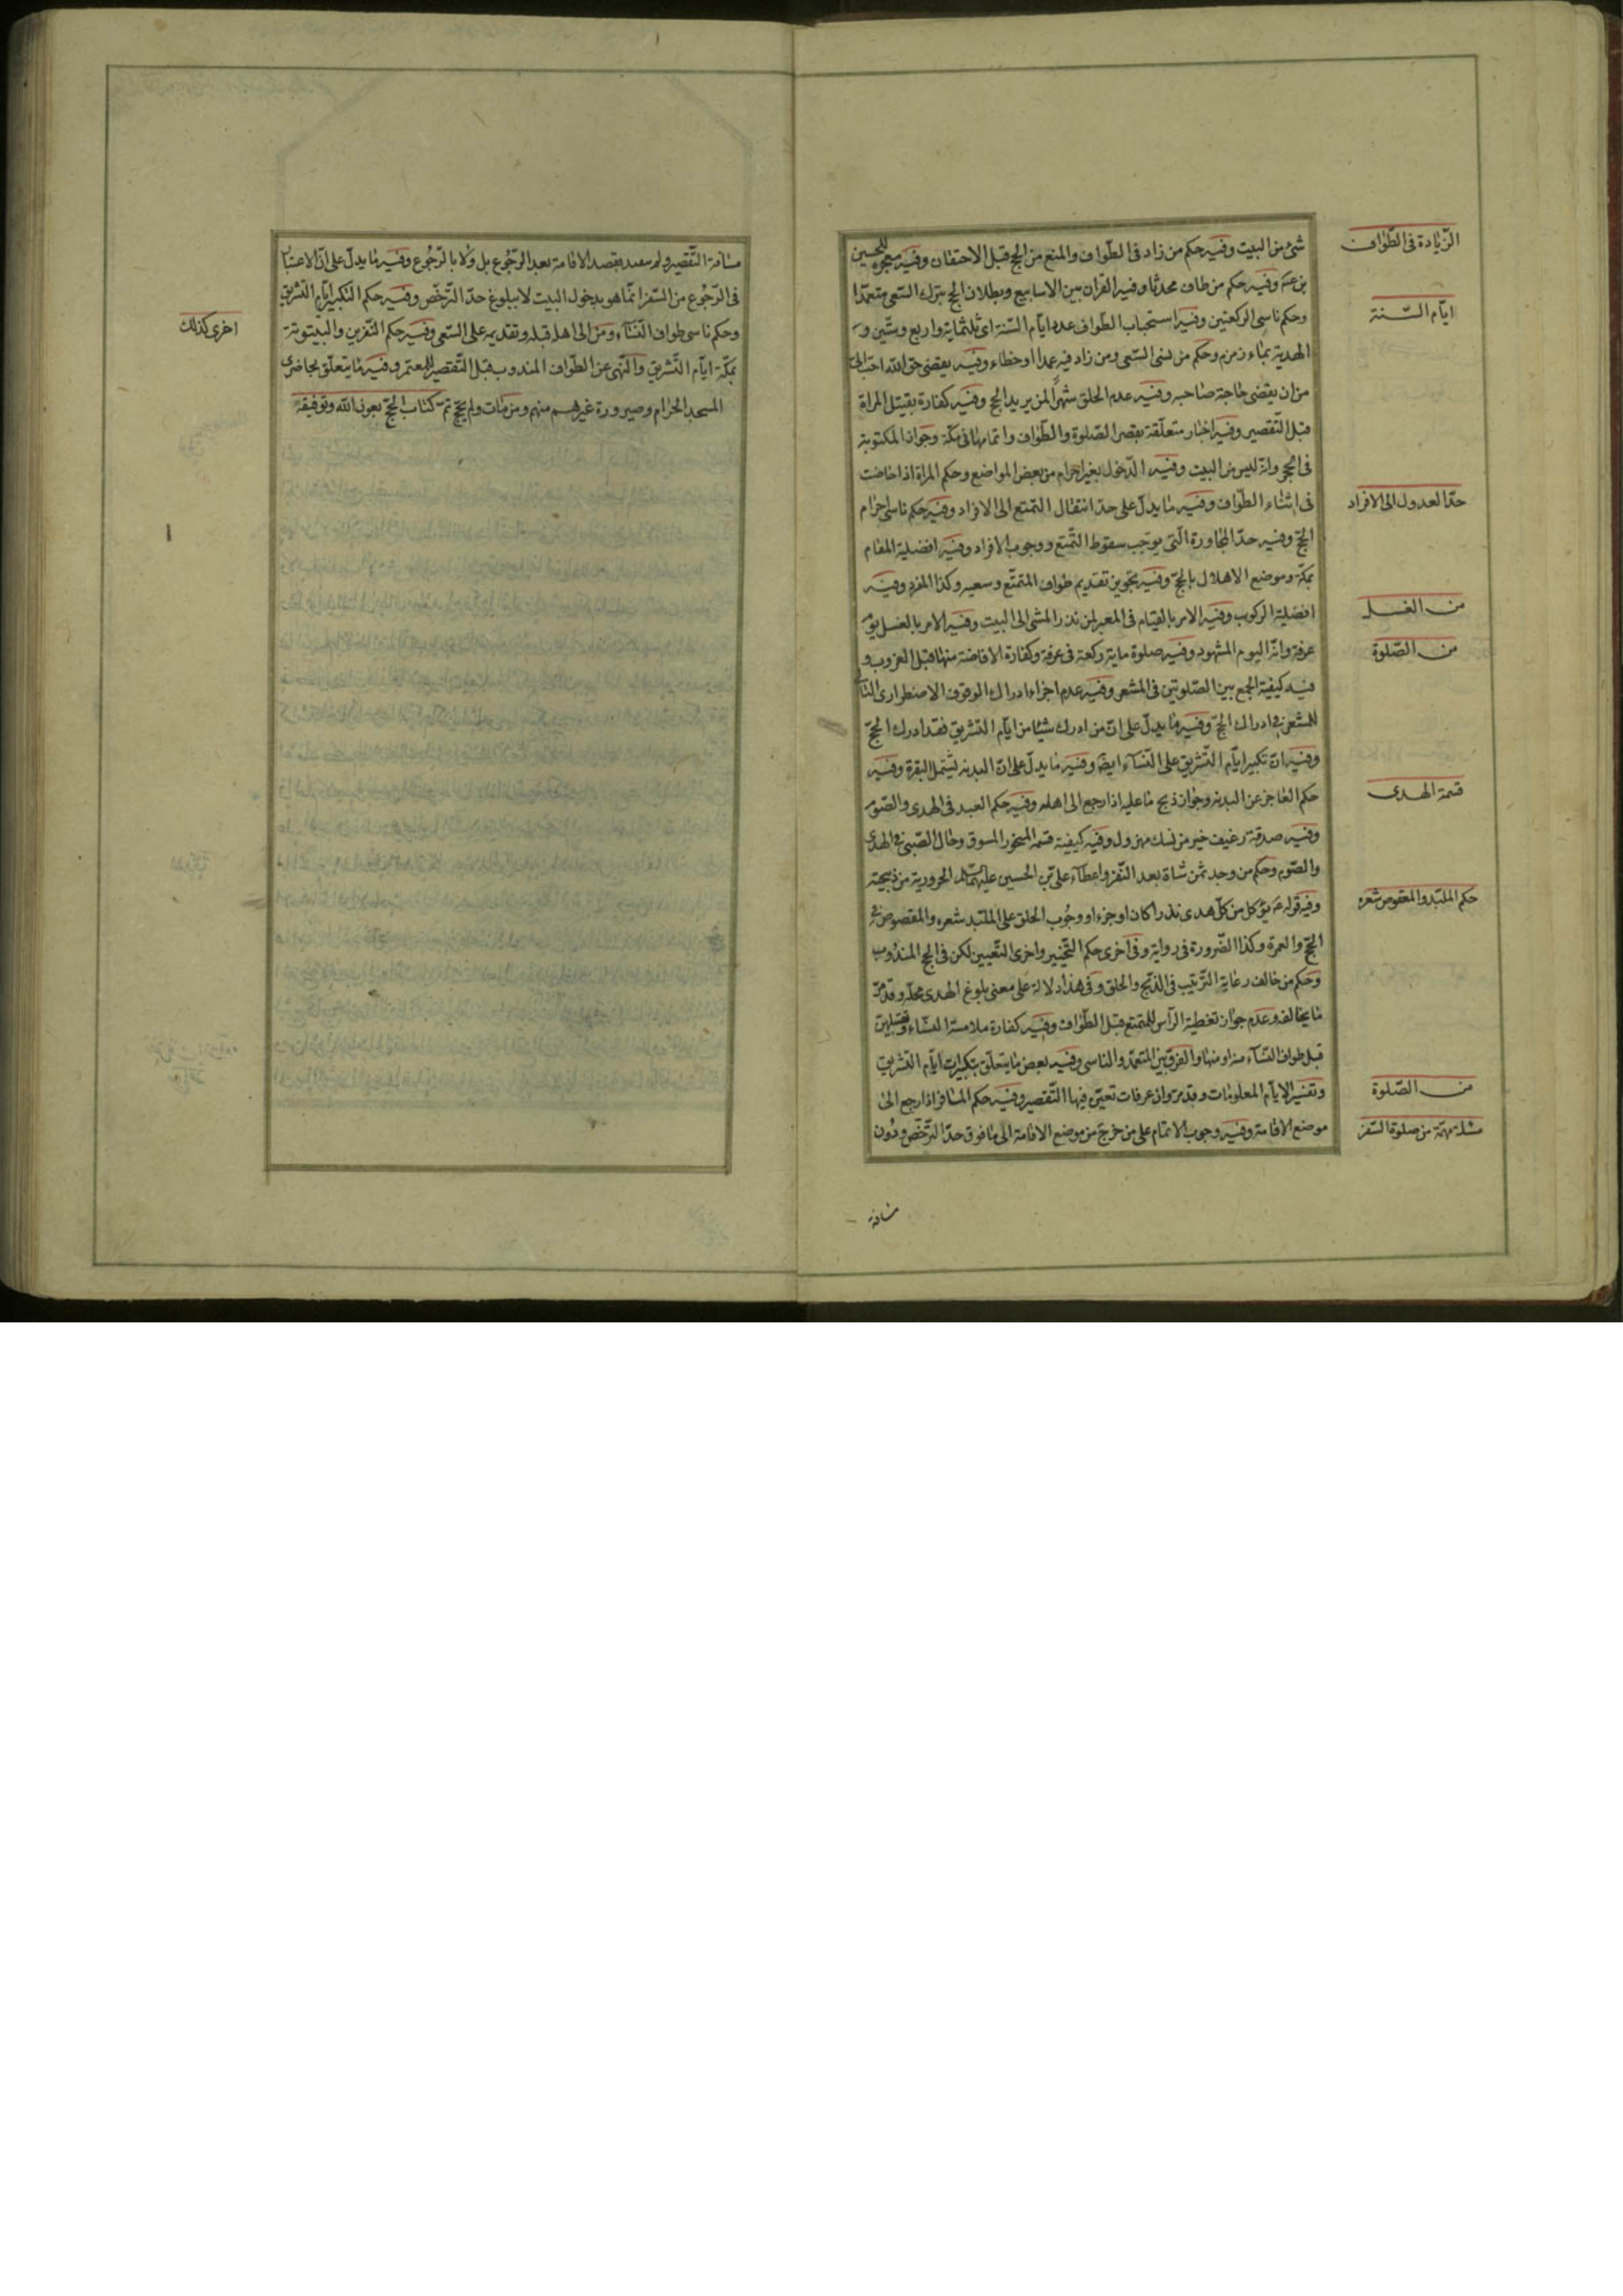 شئ من البيت وفيه حكم من زاد في الطواف والمنع من الحج قبل الاختتان وفيه معجزة للحسين
الزيادة في الطواف
بن عمه وفيه حكم من طاف محدثا وفيه القران بين الاسابيع وبطلان الحج بترك السعى متعمدا
وحكم ناسى الركعتين وفيه استحباب الطواف عدد ايام السنة اى ثلثماية واربع وستين و
ايام السنة
الهدية بماء زمزم وحكم من نسى السعى ومن زاد فيه عمدا او خطاء وفيه يقضى حق الله احب الى
من ان يقضى حاجة صاحبه وفيه عدم الحلق شهرا لمن يريد الحج وفيه كفارة بقبيل المراة
قبل التقصير وفيه اخبار متعلقة بقصر الصلوة والطواف واتمامها فى مكة وجواز المكتوبة
فى الحجر وانه ليس من البيت وفيه الدخول بغير احرام من بعض المواضع وحكم المراة اذا حاضت
فى اثناء الطواف وفيه ما يدل على حد انتقال التمتع الى الافراد وفيه حكم ناسى احرام
حد العدول الى الافراد
الحج وفيه حد المجاورة التى يوجب سقوط التمتع ووجوب الافراد وفيه افضلية المقام
بمكة وموضع الاهلال بالحج وفيه تجويز تقديم طواف المتمتع وسعيه وكذا المفرد وفيه
افضلية الركوب وفيه الامر بالقيام فى المعبر لمن نذر المشى الى البيت وفيه الامر بالغسل يوم
من الغسل
عرفة وانه اليوم المشهود وفيه صلوة ماية ركعة فى عرفة وكفارة الافاضة منها قبل الغروب و
من الصلوة
فيه كيفية الجمع بين الصلوتين فى المشعر وفيه عدم اجزاء ادراك الموقوف الاضطرارى
للمشعر فى ادراك الحج وفيه ما يدل على ان من ادرك شيئا من ايام التشريق فقد ادرك الحج
وفيه ان تكبير ايام التشريق على النساء ايضا وفيه ما يدل على ان البدنه تشمل البقرة وفيه
حكم العاجز عن البدنه وجواز ذبح ما عليه اذا رجع الى اهله وفيه حكم العبد فى الهدى والصوم
قسمة الهدى
وفيه صدقة رغيف خير من نسك مهزول وفيه كيفية قسمة المنحور المسوق وحال الصبى فى الهدى
والصوم وحكم من وجد ثمن شاة بعد النفر واعطاء على بن الحسين عليهما السلم الحرورية من ذبيحته
وفيه قوله ع يؤكل من كل هدى نذرا كان او جزاء ووجوب الحلق على الملبد شعره والمقصوص فى
حكم الملبد والمعقوص شعره
الحج والعمرة وكذا الضرورة فى رواية وفى اخرى حكم التخيير واخرى التعيين لكن فى الحج المندوب
وحكم من خالف رعاية الترتيب فى الذبح والحلق وفى هذا دلالة على معنى بلوغ الهدى محله وقد مر
ما يخالفه وعدم جواز تغطية الراس للمتمتع قبل الطواف وفيه كفارة ملامسة النساء
قبل طواف النساء منه او منها والفرق بين المتعمد والناسى وفيه بعض ما يتعلق بتكبيرات ايام التشريق
وتفسير الايام المعلومات وقد مر وان عرفات تعين فيها التقصير وفيه حكم المسافر اذا رجع الى
من الصلوة
موضع الاقامة وفيه وجوب الاتمام على من خرج من موضع الاقامة الى ما فوق حد الترخص ودون
مسئلة مهمة من صلوة السفر
مسافة
مسافة التقصير ولم بقصد الاقامة بعد الرجوع بل ولا بالرجوع وفيه ما يدل على ان الاعتبار
فى الرجوع من السفر انما هو بدخول البيت لا ببلوغ حد الترخص وفيه حكم التكبير ايام التشريق
وحكم ناسى طواف النساء ومن اتى اهله قبله وتقديمه على السعى وفيه حكم النفرين والبيتوتة
اخرى كذلك
بمكة ايام التشريق والنهى عن الطواف المندوب قبل التقصير للمعتمر وفيه ما يتعلق بحاضرى
المسجد الحرام وصيرورة غيرهم منهم ومن مات ولم يحج تم كتاب الحج بعون الله وتوفيقه